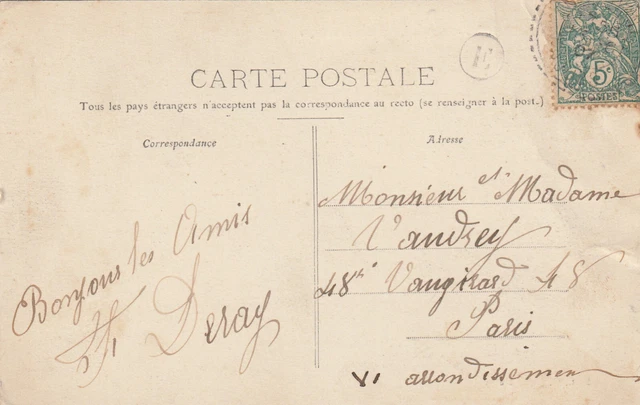 E
5c
POSTES
CARTE POSTALE
Tous les pays étrangers n'acceptent pas la correspondance au recto (se renseigner à la post.)
Correspondance
Bonjour les Amis
Deray
Adresse
Monsieur et Madame
Vaudrey
48 Vaugirard 48
Paris
VI arrondissement